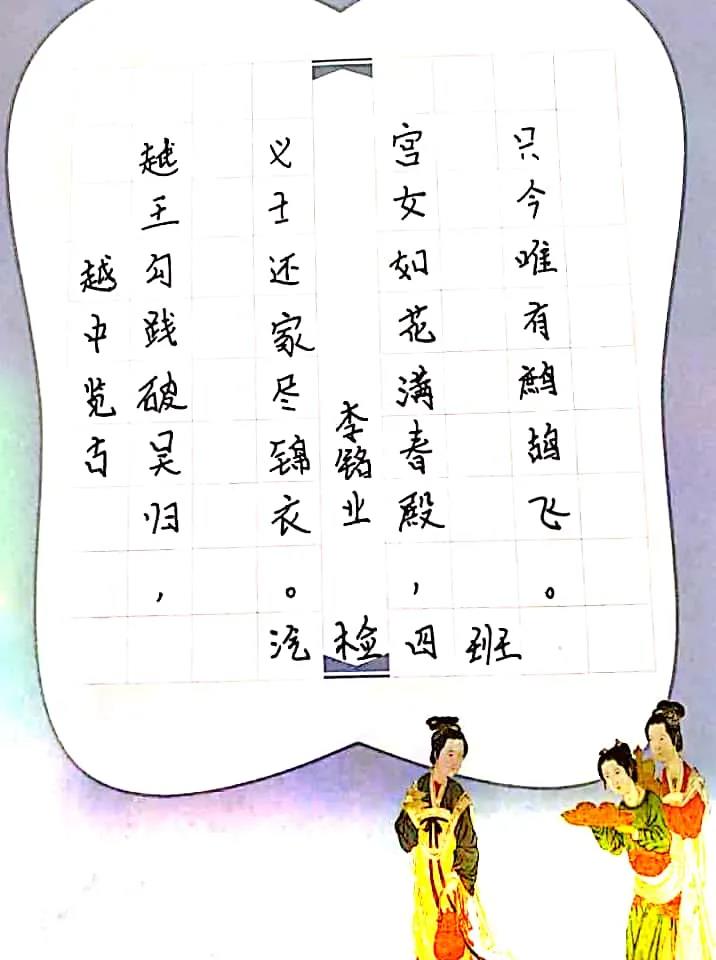 越中览古
越王勾践破吴归，
义士还家尽锦衣。
宫女如花满春殿，
只今唯有鹧鸪飞。
李铭业
汽检四班